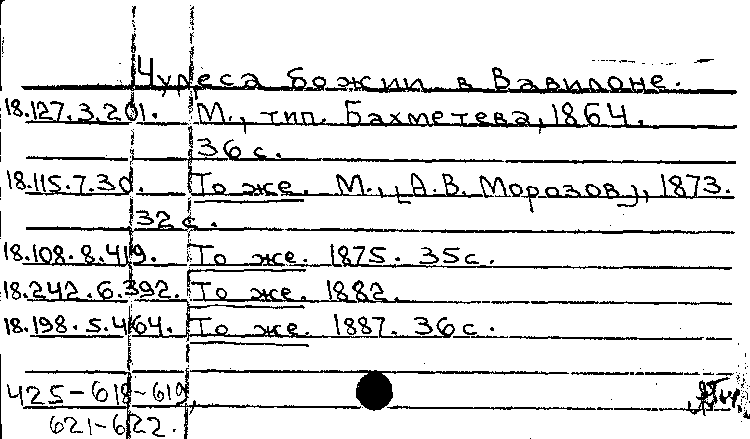 Чудеса божии в Вавилоне.
18.127.3.201. М., тип. Бахметева, 1864.
36 с.
18.115.7.30. То же. М., [А.В. Морозов], 1873.
32 с.
18.108.8.419. То же. 1875. 35 с.
18.242.6.392. То же. 1882.
18.198.5.464. То же. 1887. 36 с.
425-618-619,
621-622.